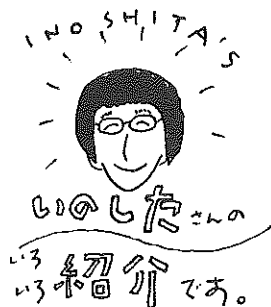 INOSHITA'S
いのしたさんの
いろいろ紹介です。